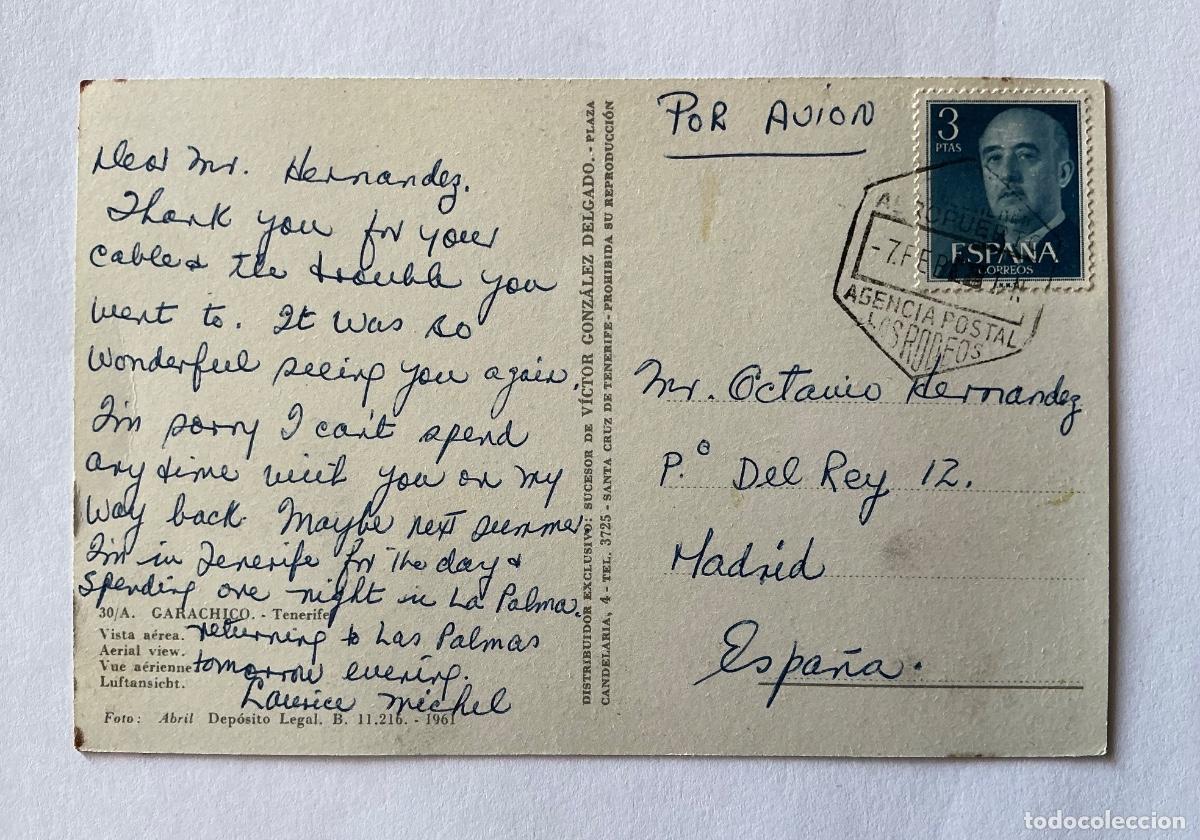 Dear Mr. Hernandez.
Thank you for your
cable & the trouble you
went to. It was so
wonderful seeing you again.
I'm sorry I can't spend
any time with you on my
way back. Maybe next summer.
I'm in Tenerife for the day &
spending one night in La Palma.
returning to Las Palmas
tomorrow evening.
Laurice Michel
30/A. GARACHICO. - Tenerife
Vista aérea.
Aerial view.
Vue aérienne
Luftansicht.
Foto: Abril Depósito Legal. B. 11.216. - 1961
DISTRIBUIDOR EXCLUSIVO: SUCESOR DE VÍCTOR GONZÁLEZ DELGADO. - PLAZA
CANDELARIA, 4 - TEL. 3725 - SANTA CRUZ DE TENERIFE - PROHIBIDA SU REPRODUCCIÓN
POR AVION
3
PTAS
ESPAÑA
CORREOS
- 7. FEB
AGENCIA POSTAL
LOS RODEOS
Mr. Octavio Hernandez
P.º Del Rey 12.
Madrid
España.
todocoleccion